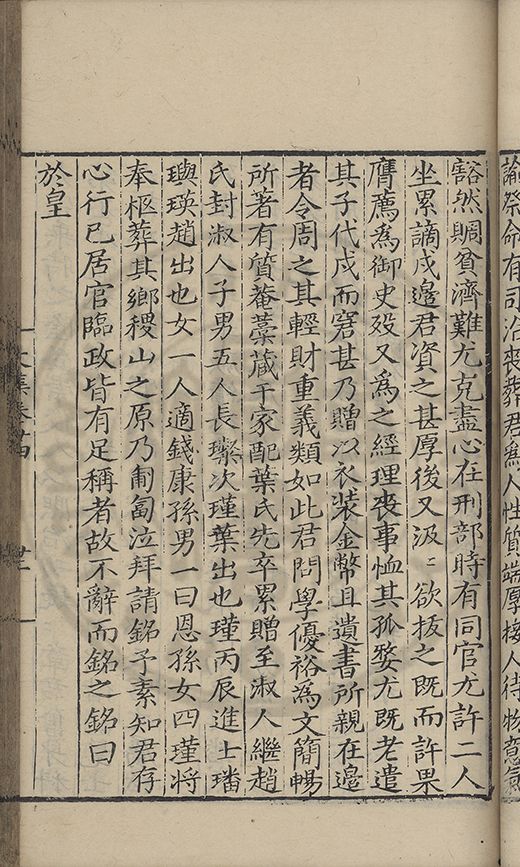 諭祭命有司治喪葬君為人性質端厚接人待物意氣
豁然賙貧濟難尤克盡心在刑部時有同官尤許二人
坐累謫戍邊君資之甚厚後又汲〻欲拔之既而許果
膺薦為御史歿又為之經理喪事恤其孤嫠尤既老遣
其子代戍而窘甚乃贈以衣裝金幣且遺書所親在邊
者令周之其輕財重義類如此君問學優裕為文簡暢
所著有質菴藁藏于家配葉氏先卒累贈至淑人繼趙
氏封淑人子男五人長瓛次瑾葉出也瑾丙辰進士璠
璵瑛趙出也女一人適錢康孫男一曰恩孫女四瑾將
奉柩葬其鄉稷山之原乃制匍泣拜請銘予素知君存
心行已居官臨政皆有足稱者故不辭而銘之銘曰
於皇
文集卷